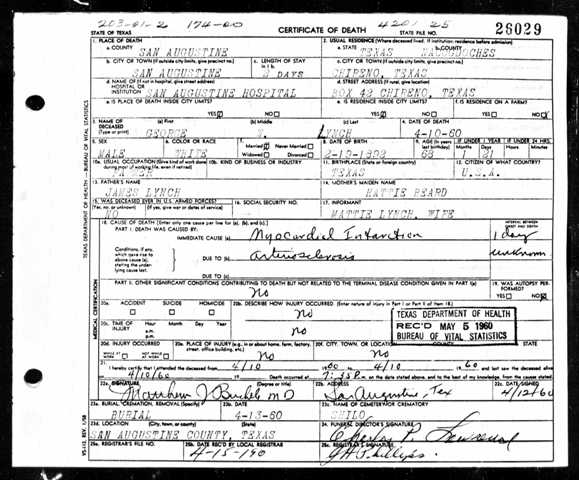 203-01-2 174-00 4201 25
STATE OF TEXAS CERTIFICATE OF DEATH 26029
1. PLACE OF DEATH 2. USUAL RESIDENCE (Where deceased lived. If institution: residence before admission)
a. COUNTY SAN AUGUSTINE a. STATE TEXAS b. COUNTY NACOGDOCHES
b. CITY OR TOWN (If outside city limits, give precinct no.) c. LENGTH OF STAY in 1 b. c. CITY OR TOWN (If outside city limits, give precinct no.)
SAN AUGUSTINE DAYS CHIRENO, TEXAS
d. NAME OF (If not in hospital, give street address) HOSPITAL OR INSTITUTION SAN AUGUSTINE HOSPITAL d. STREET ADDRESS (If rural, give location) BOX 42 CHIRENO, TEXAS
e. IS PLACE OF DEATH INSIDE CITY LIMITS? e. IS RESIDENCE INSIDE CITY LIMITS? f. IS RESIDENCE ON A FARM?
YES NO YES NO YES NO
3. NAME OF DECEASED (Type or print) (a) First (b) Middle (c) Last 4. DATE OF DEATH
GEORGE LYNCH 4-10-60
5. SEX 6. COLOR OR RACE 7. Married Never Married Widowed Divorced 8. DATE OF BIRTH 9. AGE (In years last birthday) IF UNDER 1 YEAR IF UNDER 24 HRS.
Months Days Hours Minutes
MALE WHITE 68
10a. USUAL OCCUPATION (Give kind of work done during most of working life, even if retired) 10b. KIND OF BUSINESS OR INDUSTRY 11. BIRTHPLACE (State or foreign country) 12. CITIZEN OF WHAT COUNTRY?
FARMER TEXAS U.S.A.
13. FATHER'S NAME 14. MOTHER'S MAIDEN NAME
JAMES LYNCH
15. WAS DECEASED EVER IN U.S. ARMED FORCES? 16. SOCIAL SECURITY NO. 17. INFORMANT
Yes, no, or unknown (If yes, give war or dates of service)
NO MATTIE LYNCH, WIFE
18. CAUSE OF DEATH (Enter only one cause per line for (a), (b), and (c).) INTERVAL BETWEEN ONSET AND DEATH
PART I. DEATH WAS CAUSED BY: IMMEDIATE CAUSE (a) Myocardial Infarction 1 day
Conditions, if any, which gave rise to above cause (a), stating the underlying cause last. DUE TO (b) arteriosclerosis unknown
DUE TO (c)
PART II. OTHER SIGNIFICANT CONDITIONS CONTRIBUTING TO DEATH BUT NOT RELATED TO THE TERMINAL DISEASE CONDITION GIVEN IN PART I(a) 19. WAS AUTOPSY PERFORMED?
No YES NO
20a. ACCIDENT SUICIDE HOMICIDE 20b. DESCRIBE HOW INJURY OCCURRED. (Enter nature of injury in Part I or Part II of item 18.)
No
20c. TIME OF INJURY Hour Month Day Year no
TEXAS DEPARTMENT OF HEALTH
REC'D MAY 5 1960
BUREAU OF VITAL STATISTICS
20d. INJURY OCCURRED WHILE AT WORK NOT WHILE AT WORK 20e. PLACE OF INJURY (e.g., in or about home, farm, factory, street, office building, etc.) 20f. CITY, TOWN, OR LOCATION COUNTY STATE
No No
21. I hereby certify that I attended the deceased from 4/10 1960 to 4/10 1960
4/10/60 Death occurred at 7:35P m. on the date stated above, and to the best of my knowledge, from the causes stated.
22a. SIGNATURE 22b. ADDRESS 22c. DATE SIGNED
Matthew J MD San Augustine, Tex 4/12/60
23a. BURIAL, CREMATION, REMOVAL (Specify) 23b. DATE 23c. NAME OF CEMETERY OR CREMATORY
BURIAL 4-13-60 SHILO
23d. LOCATION (City, town, or county) (State) 24. FUNERAL DIRECTOR'S SIGNATURE
SAN AUGUSTINE COUNTY, TEXAS Charles P.
25a. REGISTRAR'S FILE NO. 25b. DATE REC'D BY LOCAL REGISTRAR 25c. REGISTRAR'S SIGNATURE
4-15-190 Phillips
TEXAS DEPARTMENT OF HEALTH - BUREAU OF VITAL STATISTICS
MEDICAL CERTIFICATION
VS-112, REV. 1/58